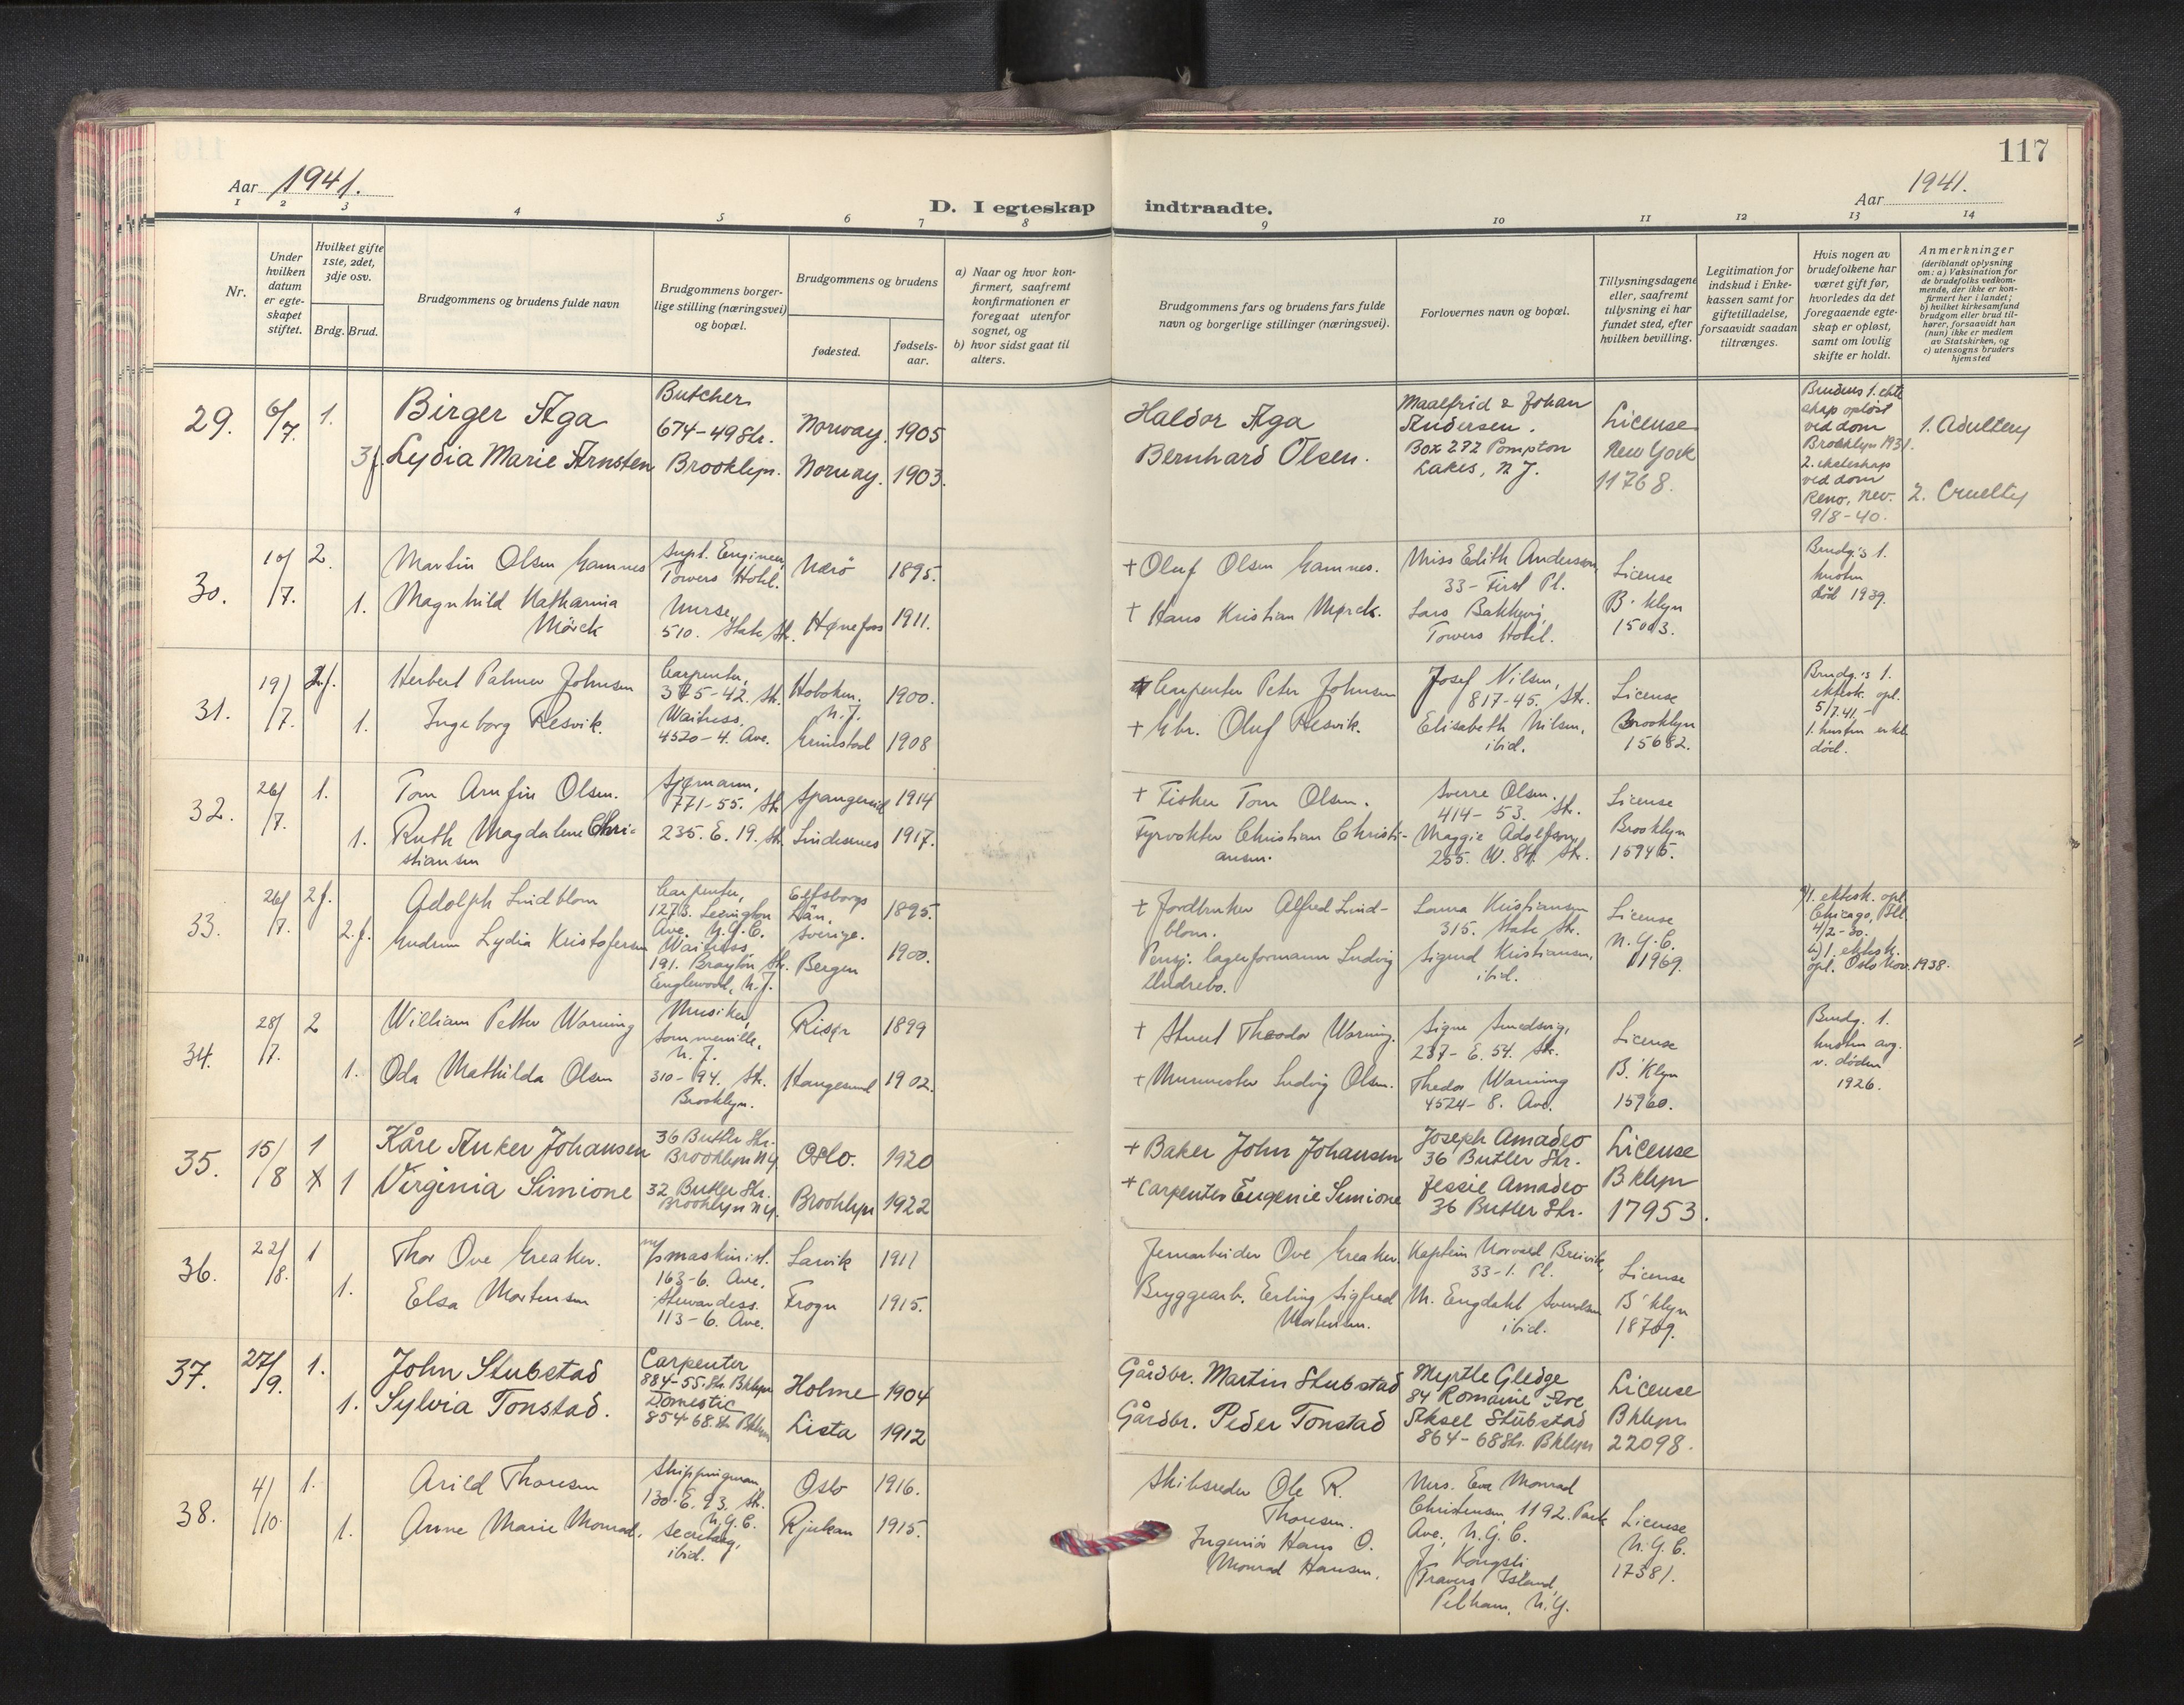 117
Aar 1941.
Aar 1941.
D. I egteskap indtraadte.
1 2 3 4 5 6 7 8 9 10 11 12 13 14
Nr.
Under hvilken datum er egte-skapet stiftet.
Hvilket gifte 1ste, 2det, 3dje osv.
Brdg. Brud.
Brudgommens og brudens fulde navn
Brudgommens borger-lige stilling (næringsvei) og bopæl.
Brudgommens og brudens
fødested.
fødsels-aar.
a) Naar og hvor kon-firmert, saafremt konfirmationen er foregaat utenfor sognet, og
b) hvor sidst gaat til alters.
Brudgommens fars og brudens fars fulde navn og borgerlige stillinger (næringsvei).
Forlovernes navn og bopæl.
Tillysningsdagene eller, saafremt tillysning ei har fundet sted, efter hvilken bevilling.
Legitimation for indskud i Enke-kassen samt for giftetilladelse, forsaavidt saadan tiltrænges.
Hvis nogen av brudefolkene har været gift før, hvorledes da det foregaaende egte-skap er opløst, samt om lovlig skifte er holdt.
Anmerkninger
(deriblandt oplysning om: a) Vaksination for de brudefolks vedkom-mende, der ikke er kon-firmert her i landet;
b) hvilket kirkesamfund brudgom eller brud til-hører, forsaavidt han (hun) ikke er medlem av Statskirken, og
c) utensogns bruders hjemsted
29. 6/7. 1. Birger Aga
Butcher
674-49 Str.
Norway. 1905
3f. Lydia Marie Arnsten
Brooklyn.
Norway. 1903.
Haldor Aga
Bernhard Olsen.
Maalfrid & Johan
Andersen.
Box 272 Pompton
Lakes, N.J.
License
New York
11768.
Brudens 1. ekte
skap opløst
ved dom
Brooklyn 1931.
2. ekteskap
ved dom
Reno, Nev.
9/8-40.
1. Adultery
2. Cruelty
30. 10/7. 2. Martin Olsen Gamnes
Supt. Engineer,
Towers Hotel.
Nærø 1895.
1. Magnhild Katharina
Mörck
Nurse,
510. State Str.
Hønefoss 1911.
+ Oluf Olsen Gamnes.
+ Hans Kristian Mørck.
Miss Edith Anderson
33-First Pl.
Lars Bakkevig,
Towers Hotel.
License
B'klyn
15003.
Brudg.'s 1.
hustru
død 1939.
31. 19/7. 2f. Herbert Palmer Johnsen
Carpenter,
375-42. Str.
Hoboken.
N.J.
1900.
1. Ingeborg Resvik.
Waitress,
4520-4. Ave.
Grimstad 1908
Carpenter Peter Johnsen
+ Gbr. Oluf Resvik.
Josef Nilsen,
817-45. Str.
Elisabeth Nilsen,
ibid.
License
Brooklyn
15682.
Brudg.'s 1.
ektesk. opl.
5/7.41.-
1. hustru erkl.
død.
32. 26/7. 1. Tom Arnfin Olsen.
Sjømann,
771-55. Str.
Spangereid 1914
1. Ruth Magdalene Chri-
stiansen
235. E. 19. Str.
Lindesnes 1917.
+ Fisker Tom Olsen.
Fyrvokter Christian Christi-
ansen.
Sverre Olsen.
414-53. Str.
Maggie Adolfsen,
255. W. 84. Str.
License
Brooklyn
15945.
33. 26/7. 2f. Adolph Lindblom
Carpenter,
1273. Lexington
Ave. N.Y.C.
Elfsborgs
Län,
Sverige.
1895.
2.f. Gudrun Lydia Kristofersen
Waitress
191. Brayton Str.
Englewood, N.J.
Bergen 1900.
+ Jordbruker Alfred Lind-
blom.
Pensj. lagerformann Ludvig
Undrebo.
Laura Kristiansen
315. State Str.
Sigurd Kristiansen,
ibid.
License
N.Y.C.
11969.
1. ektesk. opl.
Chicago, Ill.
4/2-30.
1. ektesk.
opl. Oslo Nov. 1938.
34. 28/7. 2 William Petter Warning
Musiker,
Sommerville,
N.J.
Risør 1899
1. Oda Mathilda Olsen
310-94. Str.
Brooklyn.
Haugesund 1902.
+ Stuert Theodor Warning.
+ Murmester Ludvig Olsen.
Signe Smedsvig,
237-E. 54. Str.
Thedor Warning
4524-8. Ave.
License
B.'Klyn
15960.
Brudg. 1.
hustru avg.
v. døden
1926.
35. 15/8 1 Kåre Anker Johansen
36 Butler Str.
Brooklyn NY.
Oslo. 1920
X 1 Virginia Simione
32 Butler Str.
Brooklyn NY.
Brooklyn 1922
+ Baker John Johansen
+ Carpenter Eugenie Simione
Joseph Amadeo
36 Butler Str.
Jessie Amadeo
36 Butler Str.
License
Bklyn
17953.
36. 22/8. 1 Thor Ove Greaker.
m/s maskinist.
163-6. Ave.
Larvik 1911
1. Elsa Mortensen
Stewardess.
113-6. Ave.
Frogn 1915.
Jernarbeider Ove Greaker.
Bryggearb. Erling Sigfred
Mortensen.
Kaptein Norvald Breivik,
33-1. Pl.
M. Engdahl Svendsen
ibid.
License
B'klyn
18709.
37. 27/9. 1. John Stubstad
Carpenter
884-55. Str. Bklyn
Holme 1904
1. Sylvia Tonstad.
Domestic
854-68. Str Bklyn
Lista 1912
Gårdbr. Martin Stubstad
Gårdbr. Peder Tonstad
Myrtle Gledge
84 Romaine Ave
Aksel Stubstad
864-68 Str. Bklyn
License
Bklyn
22098.
38. 4/10. 1. Arild Thoresen
Shippingman
130-E. 93. Str.
N.Y.C.
Oslo 1916.
1. Anne Marie Monrad.
Secretary,
ibid.
Rjukan 1915.
Skibsreder Ole R.
Thoresen.
Ingeniør Hans O.
Monrad Hansen.
Mrs. Eva Monrad
Christensen, 1192. Park
Ave., N.Y.C.
J. Kongsli
Travers Island,
Pelham, N.Y.
License
N.Y.C.
17381.